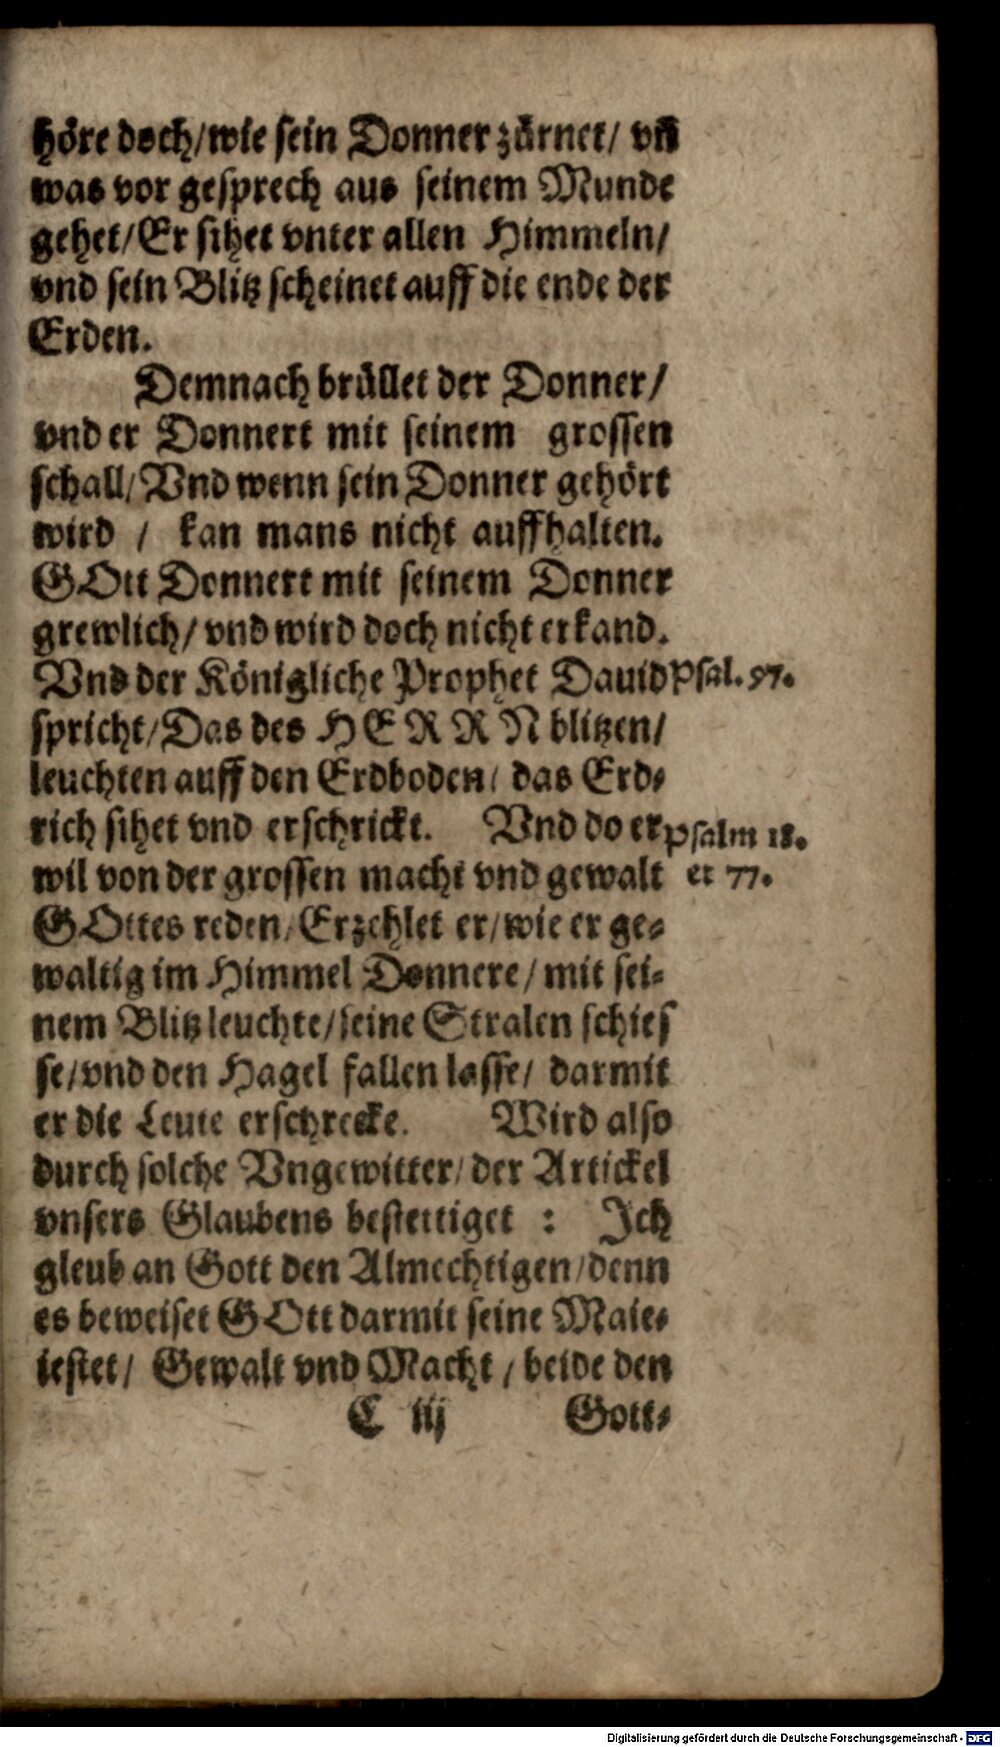 höre doch/wie sein Donner zürnet/ vñ
was vor gesprech aus seinem Munde
gehet/Er sihet vnter allen Himmeln/
vnd sein Blitz scheinet auff die ende der
Erden.
Demnach brüllet der Donner/
vnd er Donnert mit seinem grossen
schall/Vnd wenn sein Donner gehört
wird / kan mans nicht auffhalten.
GOtt Donnert mit seinem Donner
grewlich/vnd wird doch nicht erkand.
Vnd der Königliche Prophet Dauid Psal. 97.
spricht/Das des HERRN blitzen/
leuchten auff den Erdboden/ das Erd-
rich sihet vnd erschrickt. Vnd do er Psalm 18.
wil von der grossen macht vnd gewalt et 77.
GOttes reden/Erzehlet er/wie er ge-
waltig im Himmel Donnere/mit sei-
nem Blitz leuchte/seine Stralen schies
se/vnd den Hagel fallen lasse/ darmit
er die Leute erschrecke. Wird also
durch solche Vngewitter/der Artickel
vnsers Glaubens bestettiget : Jch
gleub an Gott den Almechtigen/denn
es beweiset GOtt darmit seine Maie-
iestet/ Gewalt vnd Macht/beide den
C iij Gott-
Digitalisierung gefördert durch die Deutsche Forschungsgemeinschaft - DFG